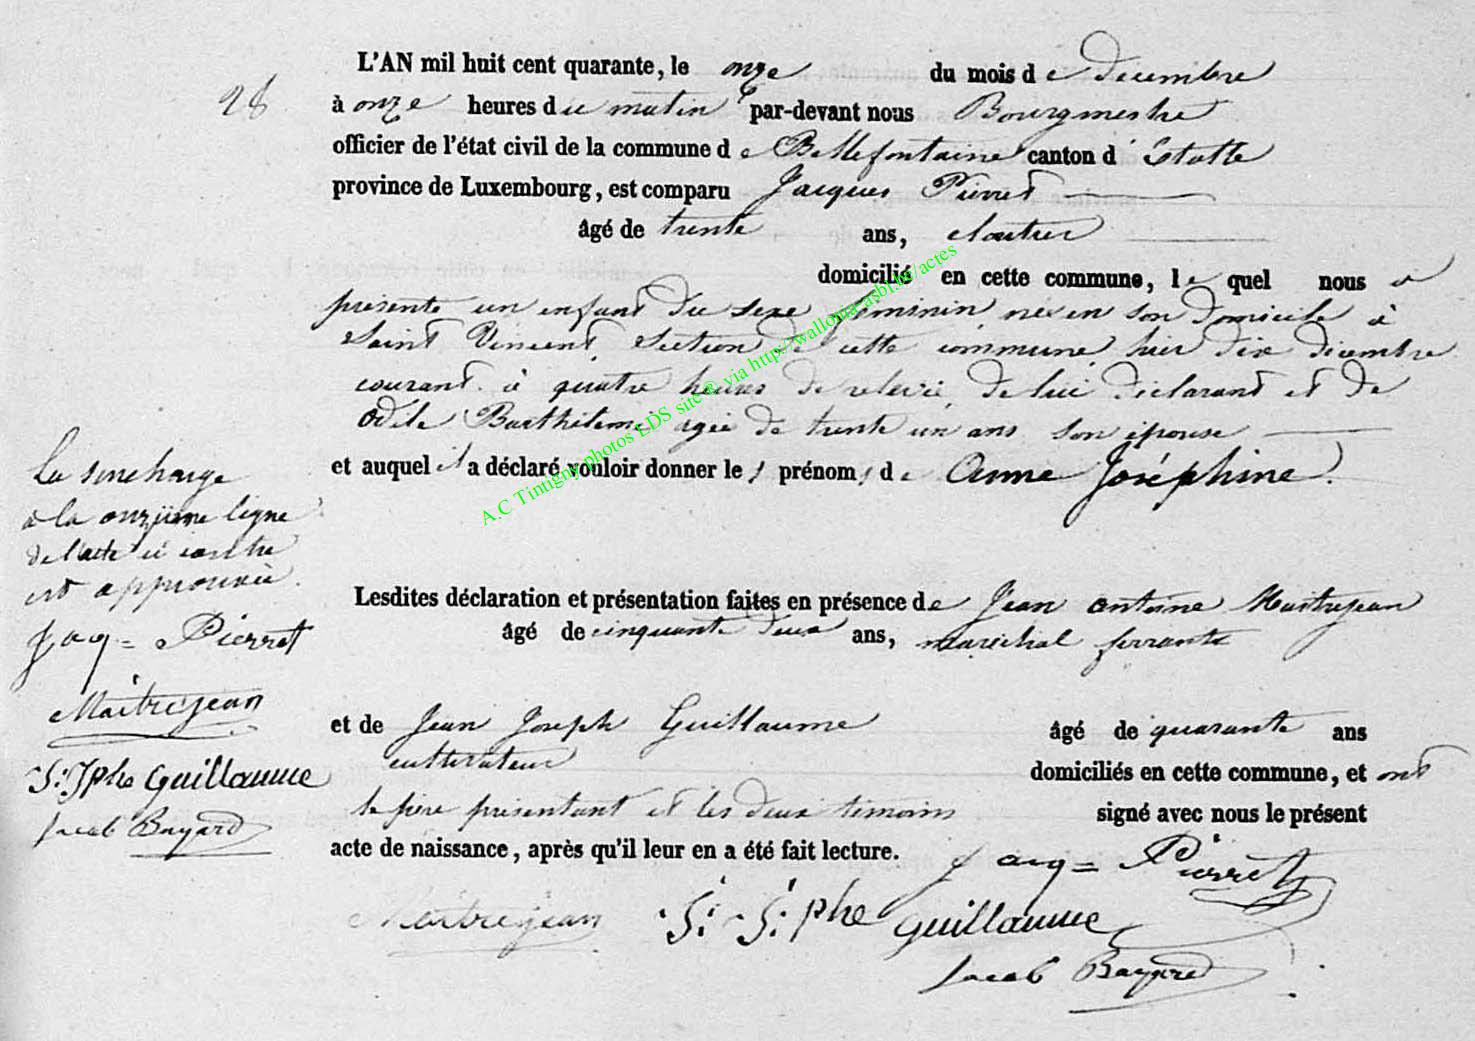 28
L'AN mil huit cent quarante, le onze du mois de décembre
à onze heures du matin par-devant nous Bourgmestre
officier de l'état civil de la commune de Bellefontaine canton d' Etalle
province de Luxembourg, est comparu Jacques Pierret
âgé de trente ans, cloutier
domicilié en cette commune, lequel nous a
présenté un enfant du sexe féminin née en son domicile à
Saint Vincent, section de cette commune hier dix décembre
courant à quatre heures de relevée, de lui déclarant et de
Odile Barthélemi agée de trente un ans son épouse
et auquel il a déclaré vouloir donner les prénoms de Anne Joséphine.
Lesdites déclaration et présentation faites en présence de Jean Antoine Maitrejean
âgé de cinquante deux ans, maréchal ferrant
et de Jean Joseph Guillaume âgé de quarante ans
cultivateur domiciliés en cette commune, et ont
le père présentant et les deux témoins signé avec nous le présent
acte de naissance, après qu'il leur en a été fait lecture.
Jacq= Pierret
Maitrejean J: J: phe Guillaume
Jacob Bayard
La surcharge
à la onzieme ligne
de l'acte ci contre
est approuvée.
Jacq= Pierret
Maitrejean
J: Jphe Guillaume
Jacob Bayard
A.C Tintigny photos LDS site @ via http://wallonia-asbl.be/actes